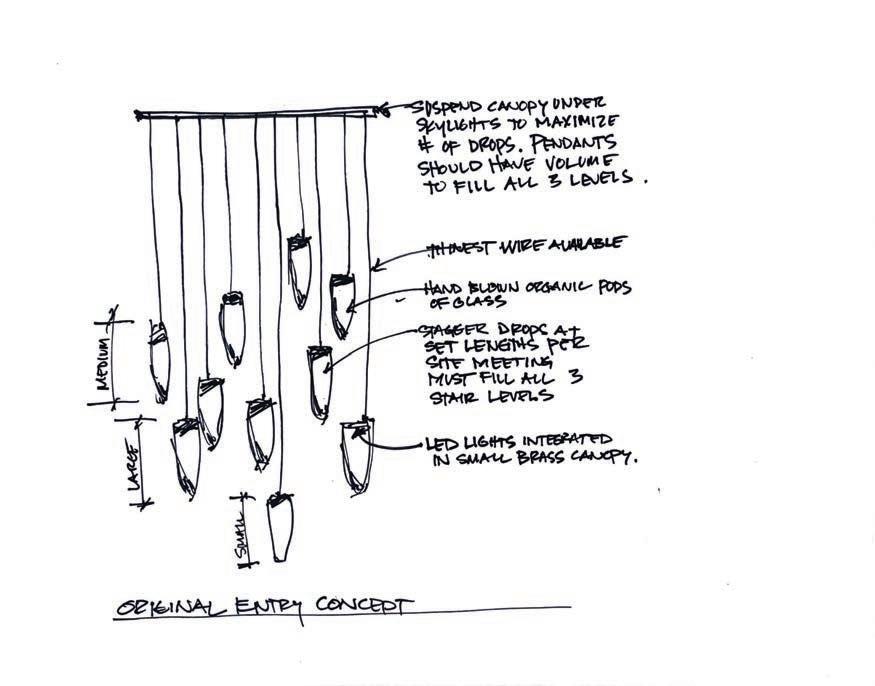 SUSPEND CANOPY UNDER
SKYLIGHTS TO MAXIMIZE
# OF DROPS. PENDANTS
SHOULD HAVE VOLUME
TO FILL ALL 3 LEVELS.
THINEST WIRE AVAILABLE
HAND BLOWN ORGANIC PODS
OF GLASS
STAGGER DROPS AT
SET LENGTHS PER
SITE MEETING
MUST FILL ALL 3
STAIR LEVELS
MEDIUM
LARGE
LED LIGHTS INTEGRATED
IN SMALL BRASS CANOPY.
SMALL
ORIGINAL ENTRY CONCEPT